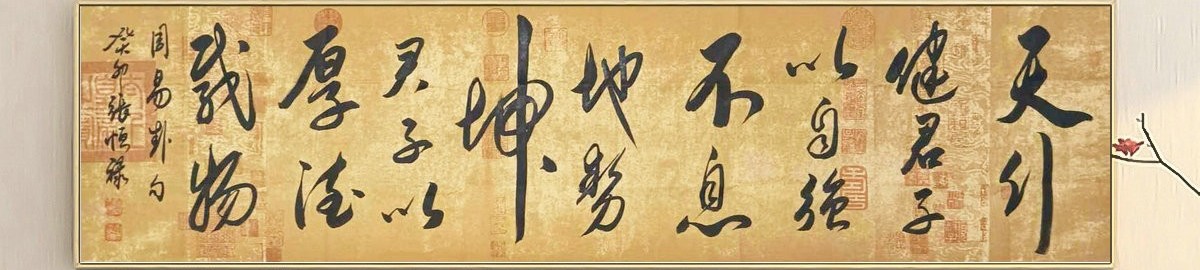 天行
健君子
以自強
不息
地勢
坤
君子以
厚德
載物
周易卦句
癸卯張恒祿